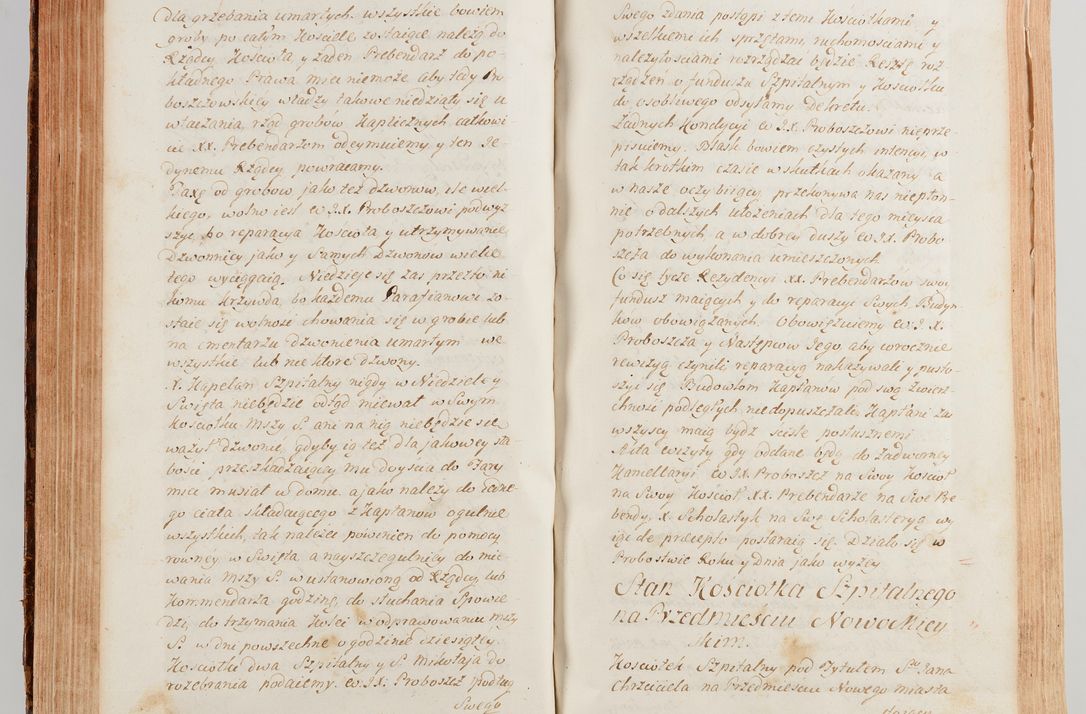 dla grzebania umarłych. wszystkie bowiem
groby po całym Kościele zostaiące należą do
Rządcy Kościoła y żaden Prebendarz do po-
kładnego Prawa mieć niemoże, aby tedy Pro
boszczowskiey władzy takowe niedziały się u
właczania, rząd grobow Kaplicznych całkowi-
cie XX. Prebendarzom odeymuiemy y ten Je-
dynemu Rządcy powracamy.
Taxę od grobow jako też dzwonow, ile wiel-
kiego, wolno iest w J.X. Proboszczowi podwyż
szyć, bo reparacya Kościoła y utrzymywanie
Dzwonnicy jako y Samych Dzwonow wiele
tego wyciągaią. Niedzieie się zaś przezto ni
komu krzywda, bo każdemu Parafianowi zo-
staie się wolność chowania się w grobie lub
na cmentarzu dzwonienia umarłym we
wszystkie lub niektore dzwony.
X. Kapelan Szpitalny nigdy w Niedziele y
Swięta niebędzie odtąd miewał w Swym
Kosciołku Mszy S. ani na nią niebędzie się
ważył dzwonić, gdyby ią też dla jakowey sła-
bości przeszkadzaiącey mu doyścia do Fary
mieć musiał w domu. a jako należy do iedne-
go ciała składaiącego z Kapłanow ogulnie
wszystkich, tak należeć powinien do pomocy
rowney w Swięta a nayszczegulniey do mie-
wania Mszy S. w ustanowioną od Rządcy lub
Kommendarza godzinę, do słuchania Spowie-
dzi, do trzymania kolei w odprawowaniu Mszy
S. w dni powszechne o godzinie dziesiątey.
Kościołki dwa Szpitalny y S. Mikołaja do
rozebrania podaiemy. w JX. Proboszcz podług
Swego
Swego zdania postąpi z temi Kościołkami y
wszelkiemi ich sprzętami, ruchomościami y
należytościami rozrządzać będzie. Resztę roz
rządzeń o funduszu Szpitalnym y Kościołku
do osobliwego odsyłamy Dekretu.
Żadnych Kondycyi w J.X. Proboszczowi nieprze-
pisuiemy. Blask bowiem czystych intencyi, w
tak krotkim czasie w skutkach okazany a
w nasze oczy biiący, przekonywa nas niepłon-
nie o dalszych ułożeniach dla tego mieysca
potrzebnych a w dobrey duszy w JX. Probo-
szcza do wykonania umieszczonych.
Co się tycze Rezydencyi XX. Prebendarzow swoy
fundusz maiących y do reparacyi Swych Budyn-
kow obowiązanych. Obowiązuiemy w J. X.
Proboszcza y Następcow Jego, aby corocznie
rewizyą czynili reparacyą nakazywali y pusto-
szyć się Budowlom Kapłanow pod swą zwierz-
chność podległych niedopuszczali. Kapłani zaś
wszyscy maią bydź ściśle posłusznemi
Akta wizyty gdy oddane będą do Zadwornej
Kancellaryi w JX. Proboszcz na Swoy Kościoł
na Swoy Kościoł XX. Prebendarze na Swe Pre-
bendy, X. Scholastyk na Swą Scholasteryą wy
iąć de praecepto postaraią się. Działo się w
Probostwie Roku y Dnia jako wyżey
Stan Kościołka Szpitalnego
na Przedmieściu Nowomiey
skim.
Kościołek Szpitalny pod Tytułem S. Jana
Chrzciciela na Przedmieściu Nowego miasta